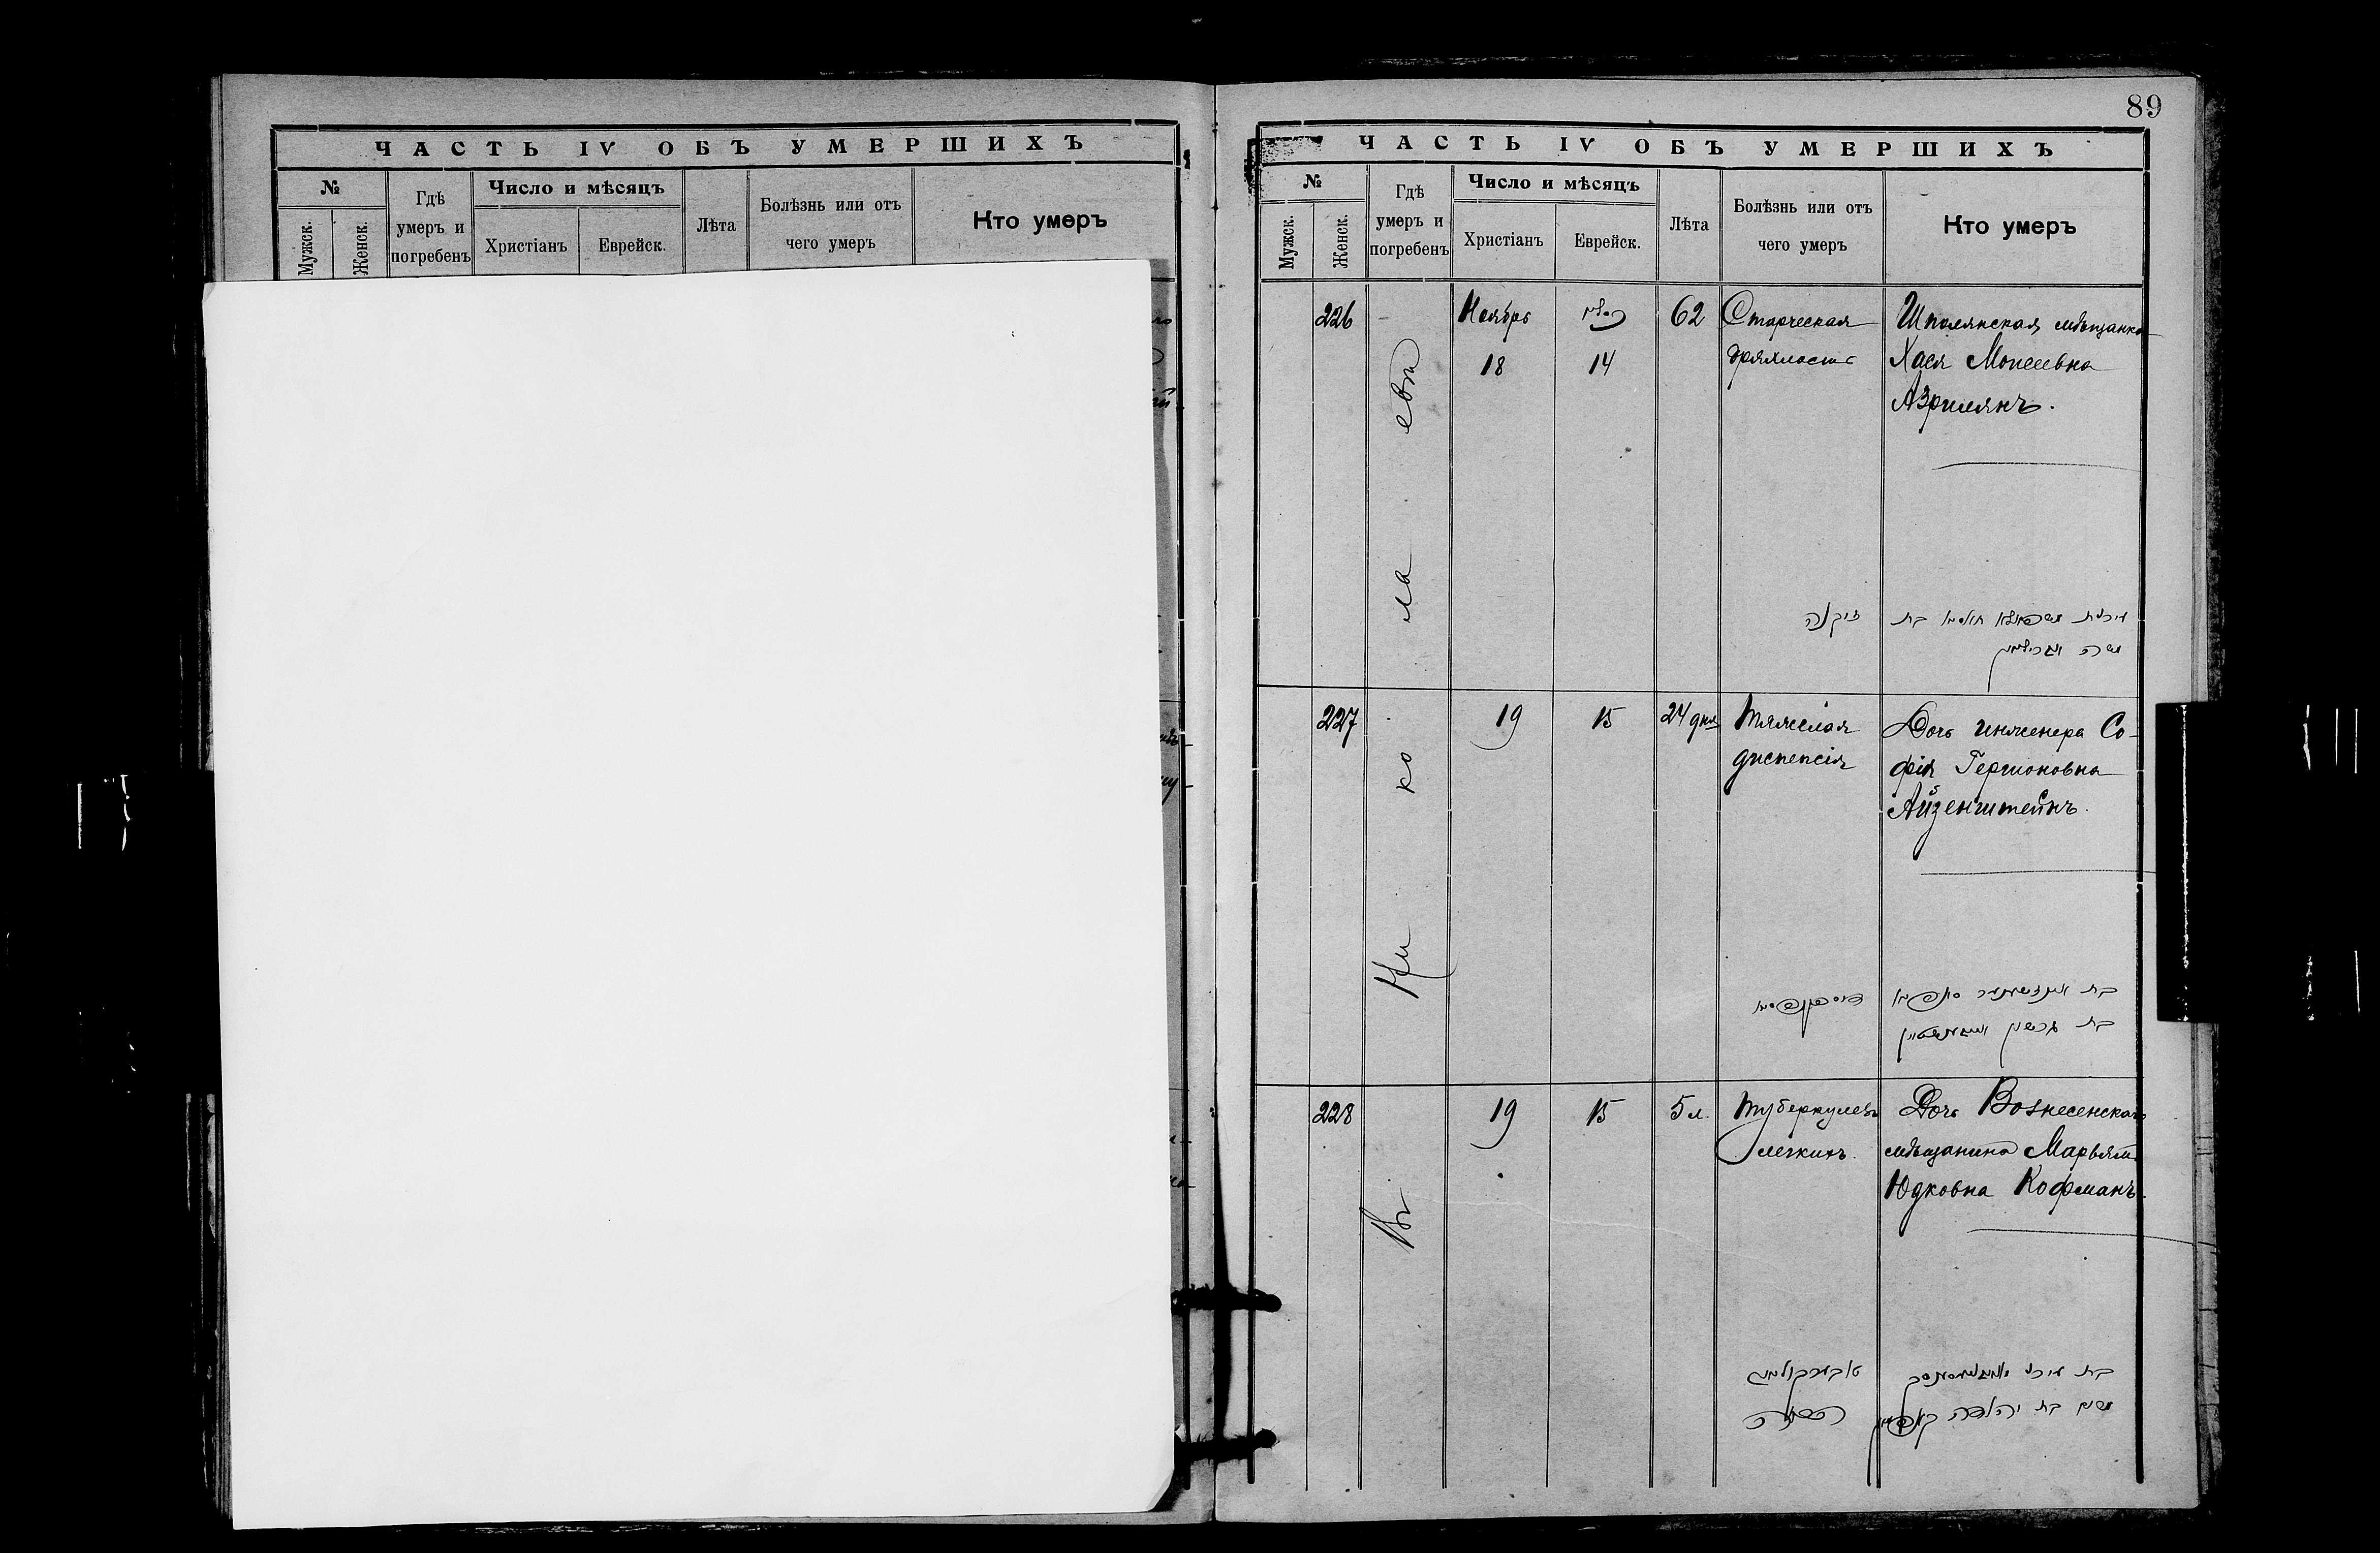 89
ЧАСТЬ IV ОБЪ УМЕРШИХЪ
№
Мужск.
Женск.
Гдѣ
умеръ и
погребенъ
Число и мѣсяцъ
Христіанъ
Еврейск.
Лѣта
Болѣзнь или отъ
чего умеръ
Кто умеръ
ЧАСТЬ IV ОБЪ УМЕРШИХЪ
№
Мужск.
Женск.
Гдѣ
умеръ и
погребенъ
Число и мѣсяцъ
Христіанъ
Еврейск.
Лѣта
Болѣзнь или отъ
чего умеръ
Кто умеръ
Въ Ни ко ла евѣ
226
Ноябрь
18
כסלו
14
62
Старческая
дряхлость
Шполянская мѣщанка
Хася Моисеевна
Азрилянъ.
זיקנה
בת
משה
227
19
15
24 дня
Тяжелая
диспепсія
Дочь инженера Со-
фія Гершоновна
Айзенштейнъ.
בת
בת גרשון
228
19
15
5 л.
Туберкулезъ
легкихъ.
Дочь Вознесенскаго
мѣщанина Марьямъ
Юдковна Кофманъ.
בת
בת יהודה